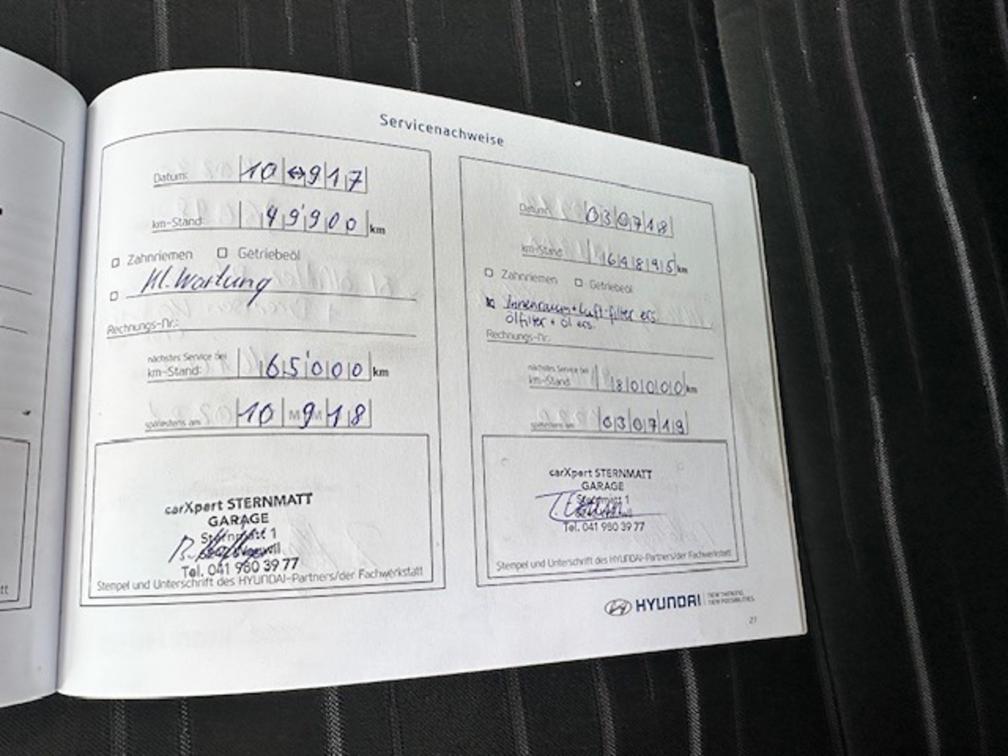 Servicenachweise
Datum: 10 ↔ 9 1 7
km-Stand: 4 9 9 0 0 km
Zahnriemen Getriebeöl
Kl. Wartung
Rechnungs-Nr.:
nächstes Service bei
km-Stand: 6 5 0 0 0 km
spätestens am 10 9 18
carXpert STERNMATT
GARAGE
Sternmatt 1
Tel. 041 980 39 77
Stempel und Unterschrift des HYUNDAI-Partners/der Fachwerkstatt
Datum: 0 3 0 7 1 8
km-Stand: 6 4 8 9 5 km
Zahnriemen Getriebeöl
Innenraum + Luft-filter ers.
ölfilter + öl ers.
Rechnungs-Nr.:
nächstes Service bei
km-Stand: 8 0 0 0 0 km
spätestens am 0 3 0 7 1 9
carXpert STERNMATT
GARAGE
Sternmatt 1
Tel. 041 980 39 77
Stempel und Unterschrift des HYUNDAI-Partners/der Fachwerkstatt
HYUNDAI NEW THINKING.
NEW POSSIBILITIES.
21